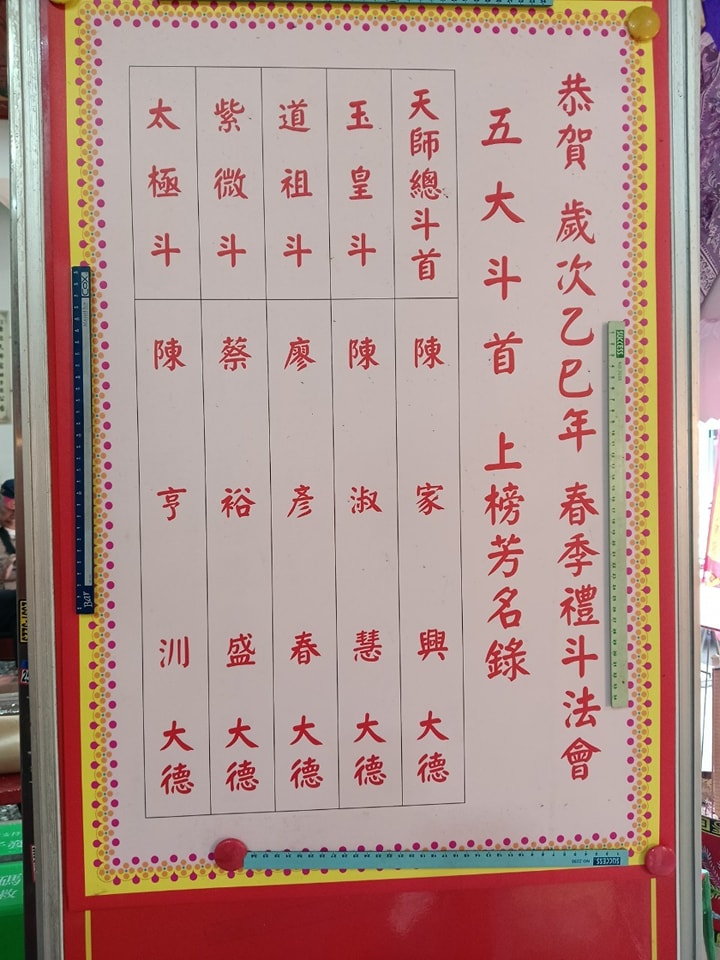 恭賀 歲次乙巳年 春季禮斗法會
五大斗首 上榜芳名錄
天師總斗首 陳家興大德
玉皇斗 陳淑慧大德
道祖斗 廖彥春大德
紫微斗 蔡裕盛大德
太極斗 陳亨汌大德
SUCCESS
SUCCESS
COX
Bar